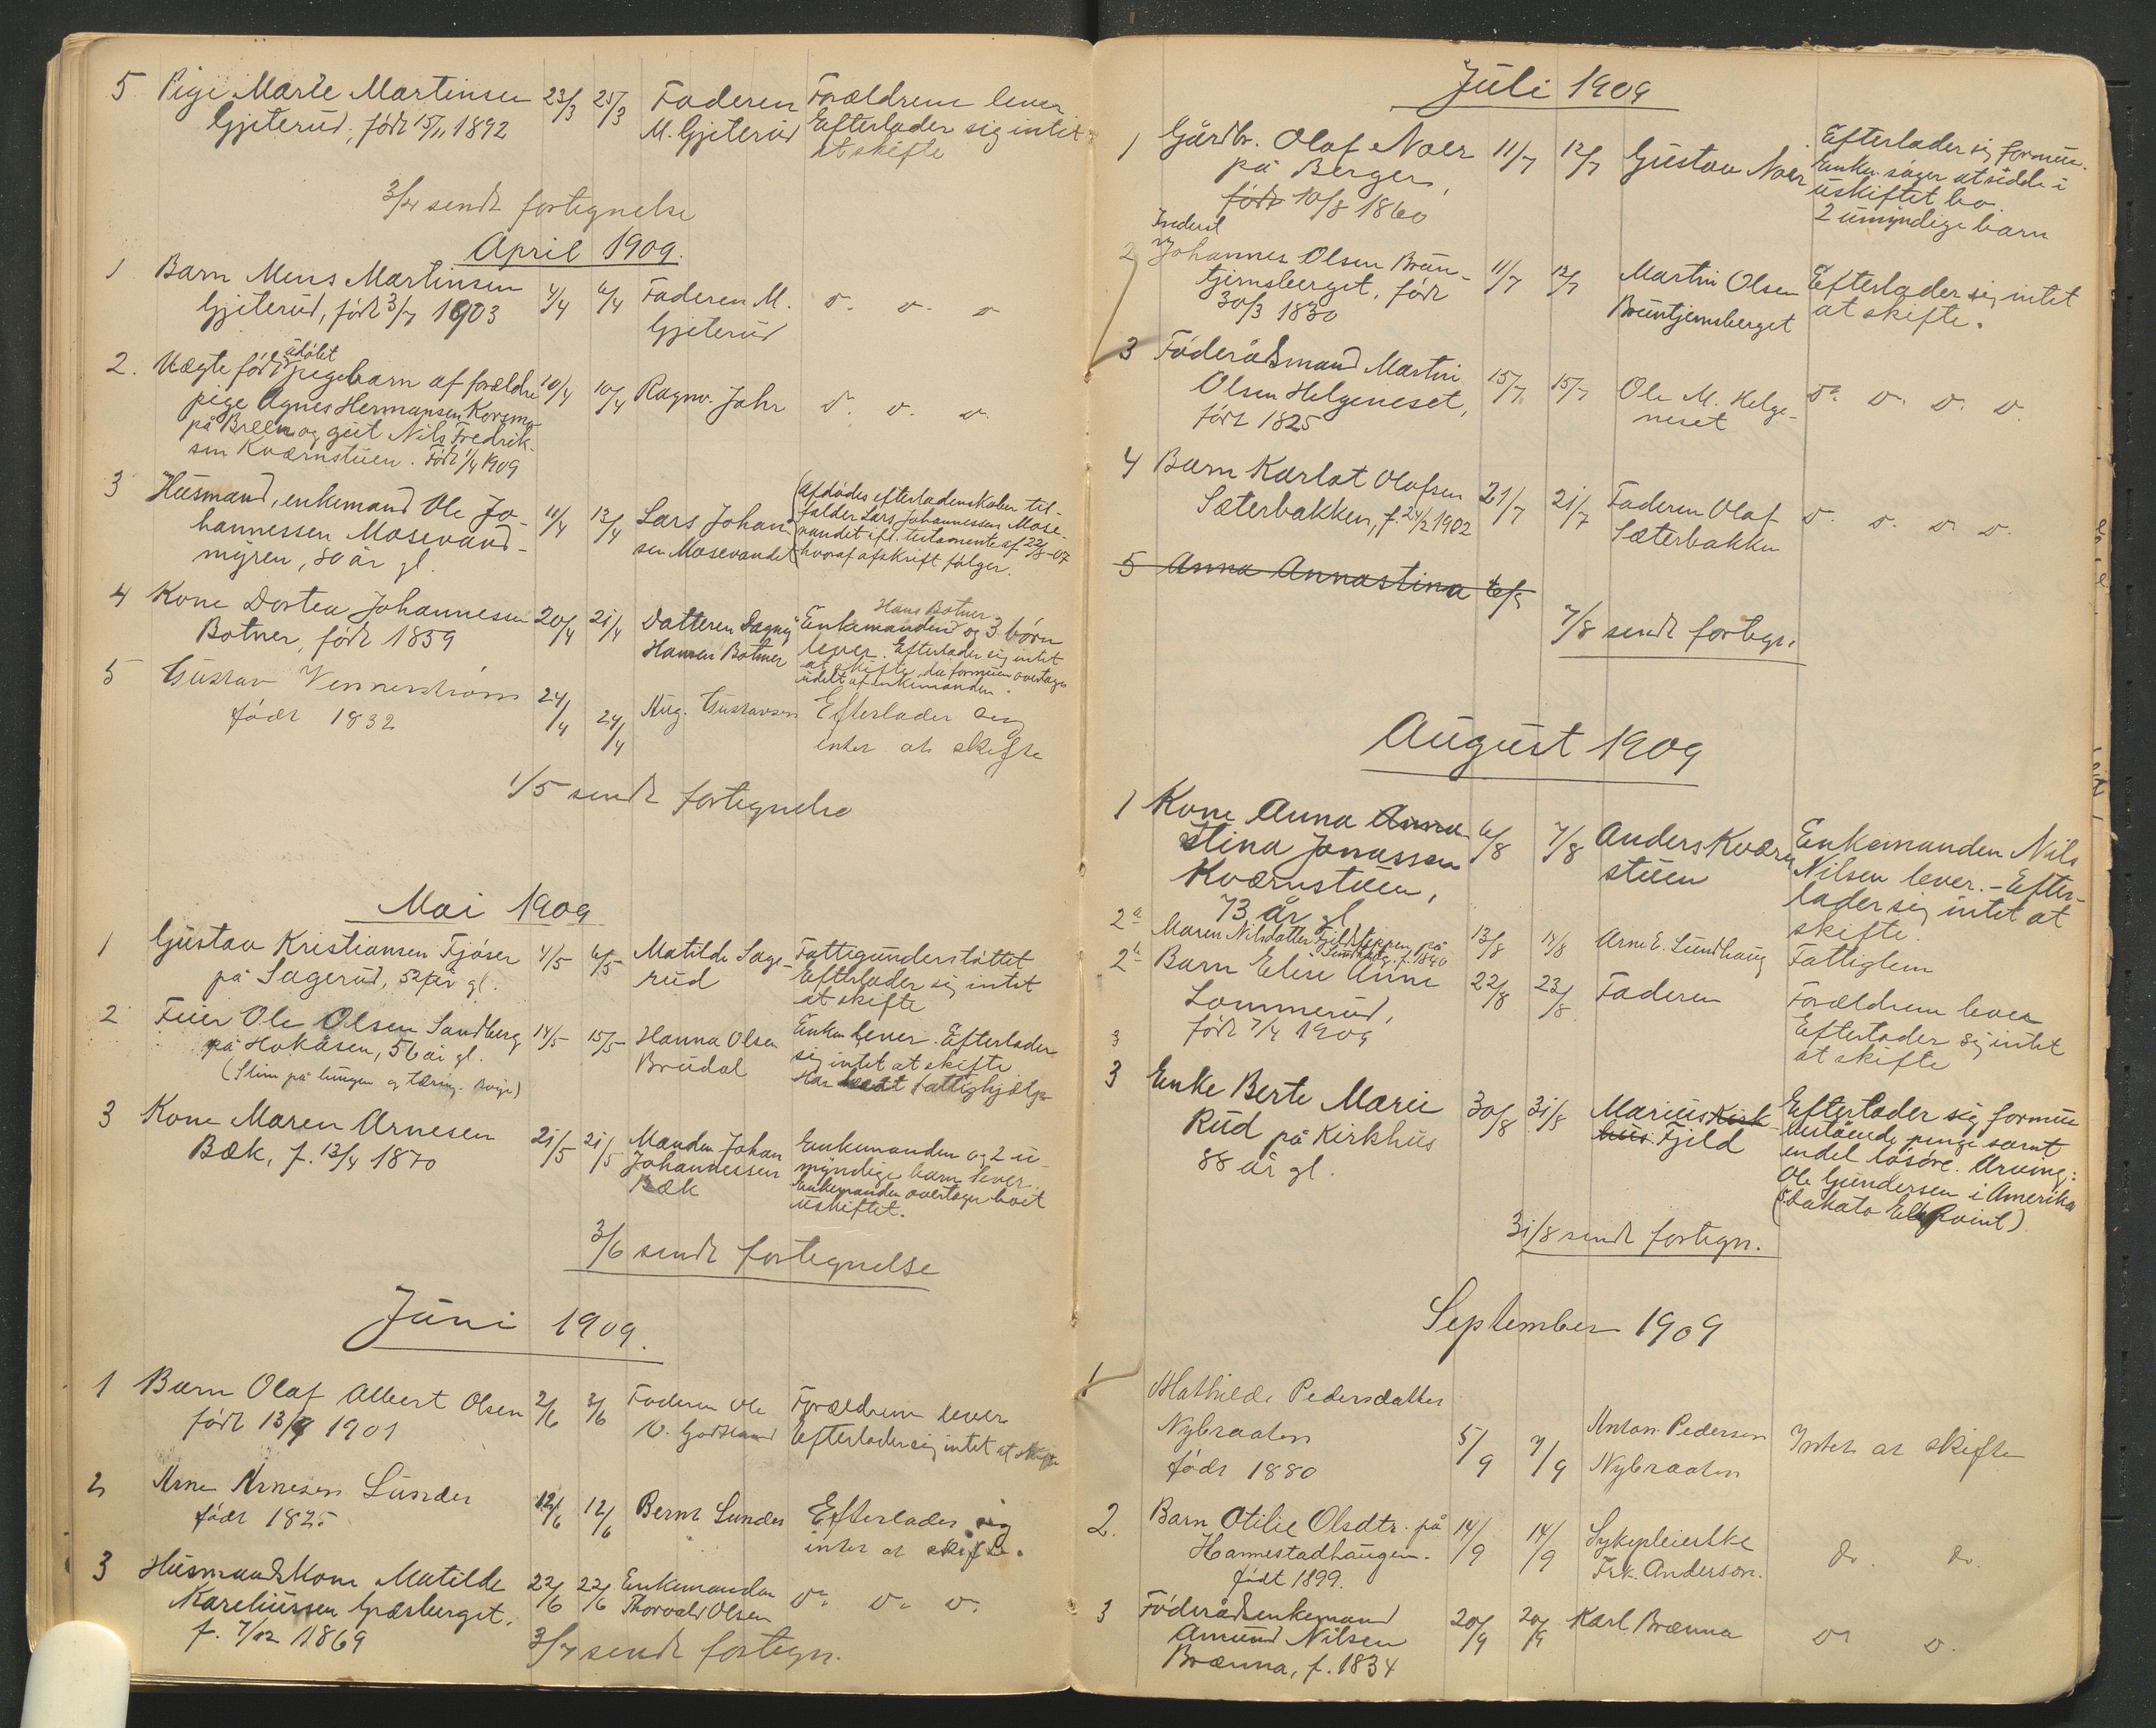 5 Pige Marte Martinsen 23/3 25/3 Faderen Forældrene lever
Gjiterud, født 15/11 1892 M. Gjiterud Efterlader sig intet
at skifte
3/4 sendt fortegnelse
April 1909.
1 Barn Mens Martinsen 4/4 6/4 Faderen M. d. d. d
Gjiterud, født 3/7 1903 Gjiterud
2. Uægte født udøbt pigebarn af forældre 10/4 10/4 Ragnv. Jahr d. d. d.
pige Agnes Hermansen Korsmo
på Breen og gut Nils Fredrik-
sen Kværnstuen. Født 1/4 1909
3 Husmand, enkemand Ole Jo- 11/4 13/4 Lars Johan- (Afdødes efterladenskaber til-
hannessen Mosevand- sen Mosevandet falder Lars Johannessen Mose-
myren, 80 år gl. vandet ifl. testamente af 22/8-07
hvoraf afskrift følger.
4 Kone Dortea Johannessen 20/4 21/4 Datteren Dagny Enkemanden Hans Botner og 3 børn
Botner, født 1859 Hansen Botner lever. Efterlader sig intet
at skifte, da formuen overtages
udelt af enkemanden.
5 Gustav Vennerstrøm 24/4 24/4 Aug. Gustavsen Efterlader sig
født 1832 intet at skifte
1/5 sendt fortegnelse
Mai 1909
1 Gustav Kristiansen Fjøser 4/5 6/5 Matilde Sage- Fattigunderstøttet
på Sagerud, 52 år gl. rud Efterlader sig intet
at skifte
2 Feier Ole Olsen Sandberg 14/5 15/5 Hanna Olsen Enken lever. Efterlader
på Hokåsen, 56 år gl. Brudal sig intet at skifte
(Slim på lungen og tæring. Svige) Har havt fattighjælp
3 Kone Maren Arnesen 21/5 21/5 Manden Johan Enkemanden og 2 u-
Bæk, f. 13/4 1870 Johannessen myndige barn lever.
Bæk Enkemanden overtager boet
uskiftet.
3/6 sendt fortegnelse
Juni 1909.
1 Barn Olaf Albert Olsen 2/6 3/6 Faderen Ole Forældrene lever
født 13/9 1901 Efterlader sig intet at skifte
2 Arne Arnesen Lunder 12/6 12/6 Bernt Lunder Efterlader sig
født 1825 intet at skifte.
3 Husmandskone Matilde 22/6 22/6 Enkemanden d. d. d.
Kareliussen Græsberget. Thorvald Olsen
f. 7/12 1869
3/7 sendt fortegn.
Juli 1909
1 Gårdbr. Olaf Noer 11/7 12/7 Gustav Noer Efterlader sig formue.
på Berger, Enken søger at sidde i
født 10/8 1860 uskiftet bo.
2 umyndige barn
Inderst
2 Johannes Olsen Brun- 11/7 12/7 Martin Olsen Efterlader sig intet
tjernsberget, født Bruntjernsberget at skifte.
30/3 1830
3 Föderådsmand Martin 15/7 15/7 Ole M. Helge- d. d. d. d.
Olsen Helgeneset, neset
født 1825
4 Barn Karlot Olafsen 21/7 21/7 Faderen Olaf d. d. d. d.
Sæterbakken, f. 24/2 1902 Sæterbakken
5 Anna Annastina 6/8
7/8 sendt fortegn.
August 1909
1 Kone Anna Anna 6/8 7/8 Anders Kværn Enkemanden Nils
Stina Jonassen stuen Nilsen lever. - Efter-
Kværnstuen, lader sig intet at
73 år gl. skifte.
2a Maren Nilsdatter Fjeldteppen, på 13/8 14/8 Arne E. Lundhaug Fattiglem
Lundhaug. f. 1840
2b Barn Elise Anne 22/8 23/8 Faderen Forældrene lever
Lommerud, Efterlader sig intet
3 født 7/4 1909 at skifte
3 Enke Berte Marie 30/8 31/8 Marius Kirk- Efterlader sig formue
Rud på Kirkhus hus Fjeld bestående penge samt
88 år gl. endel løsøre. Arving:
Ole Gundersen i Amerika
(S. Dakato Elk Point)
31/8 sendt fortegn.
September 1909
1 Mathilde Pedersdatter
Nybraaten 5/9 7/9 Anton Pedersen Intet at skifte
født 1880 Nybraaten
2. Barn Otilie Olsdtr. på 14/9 14/9 Sykepleierske do. do.
Hannestadhaugen. Frk. Anderson.
født 1899.
3 Föderådsenkemand 20/9 20/9 Karl Brænna do d.
Amund Nilsen
Brænna, f. 1834